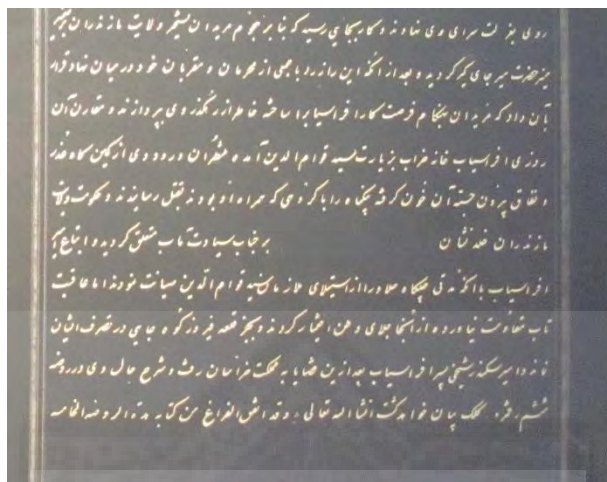 روی بعزلت سرای وی نهادند و کار بجایی رسید که بنابر هجوم مریدان تسخیر ولایت مازندران
حضرت میر جای گیر گردید و بعد از آنکه این راز را با جمعی از محرمان و مقربان خود در میان نهاد قرار
بآن داد که مریدان هنگام فرصت کار افراسیاب را ساخته خاطر از رهگذر وی پردازند و مقارن آن
روزی افراسیاب خانه خراب بزیارت سید قوام الدین آمده منتظران ورود وی از کمین کاه غدر
و نفاق بیرون جسته آن خون گرفته بیکناه را با گروهی که همراه او بودند بقتل رسانیدند و حکومت ولایت
مازندران فتنه نشان بر جناب سیادت مآب متعلق گردید و اتباع
افراسیاب با آنکه مدتی را از استیلای ملازمان سید قوام الدین صیانت نمودند اما عاقبت
تاب مقاومت نیاورده از آنجا جلای وطن اختیار کردند و بجز قلعه فیروزکوه جایی در تصرف ایشان
نماند و امیر اسکندر شیخی پسر افراسیاب بعد از ین قضایا به مملکت خراسان رفت و شرح حال وی در روضه
ششم رقمزده کلک بیان خواهد گشت انشا الله تعالی وقد اتفق الفراغ من کتابة هذه الروضة الخامسة